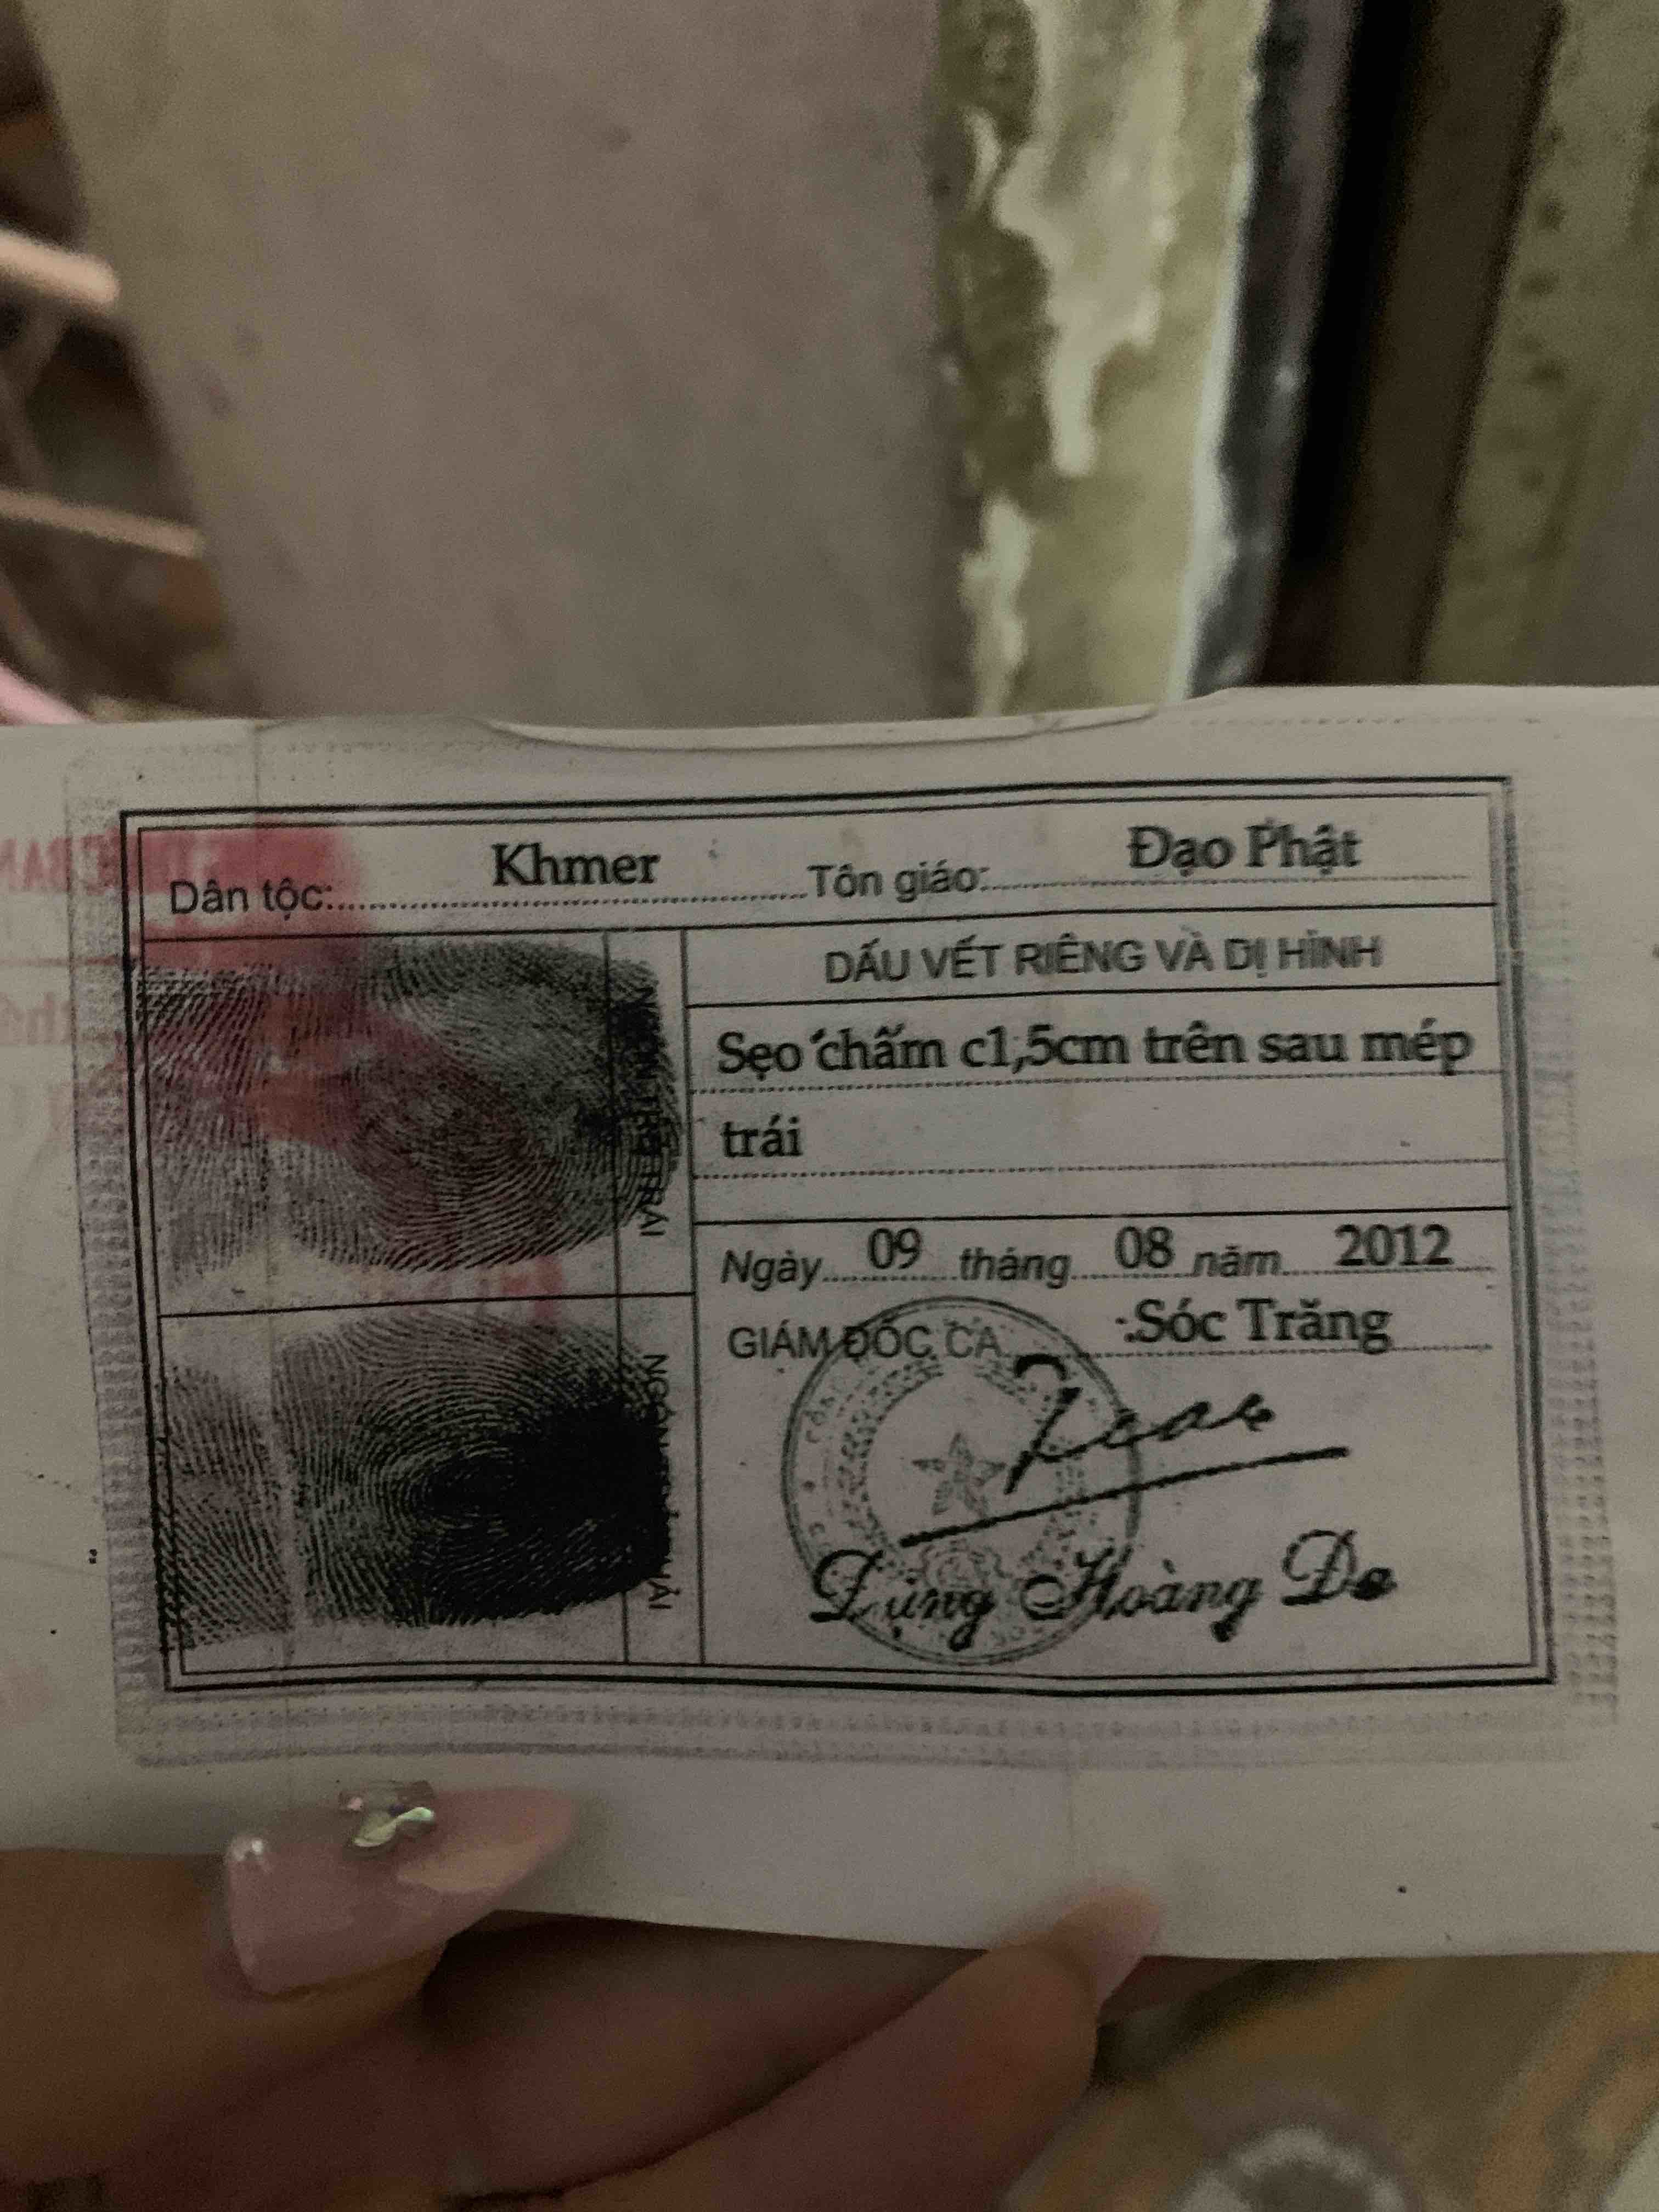 Dân tộc: Khmer Tôn giáo: Đạo Phật
DẤU VẾT RIÊNG VÀ DỊ HÌNH
Sẹo chấm c1,5cm trên sau mép
trái
Ngày 09 tháng 08 năm 2012
GIÁM ĐỐC CA :Sóc Trăng
Hoàng
NGÓN TRỎ TRÁI
NGÓN TRỎ PHẢI